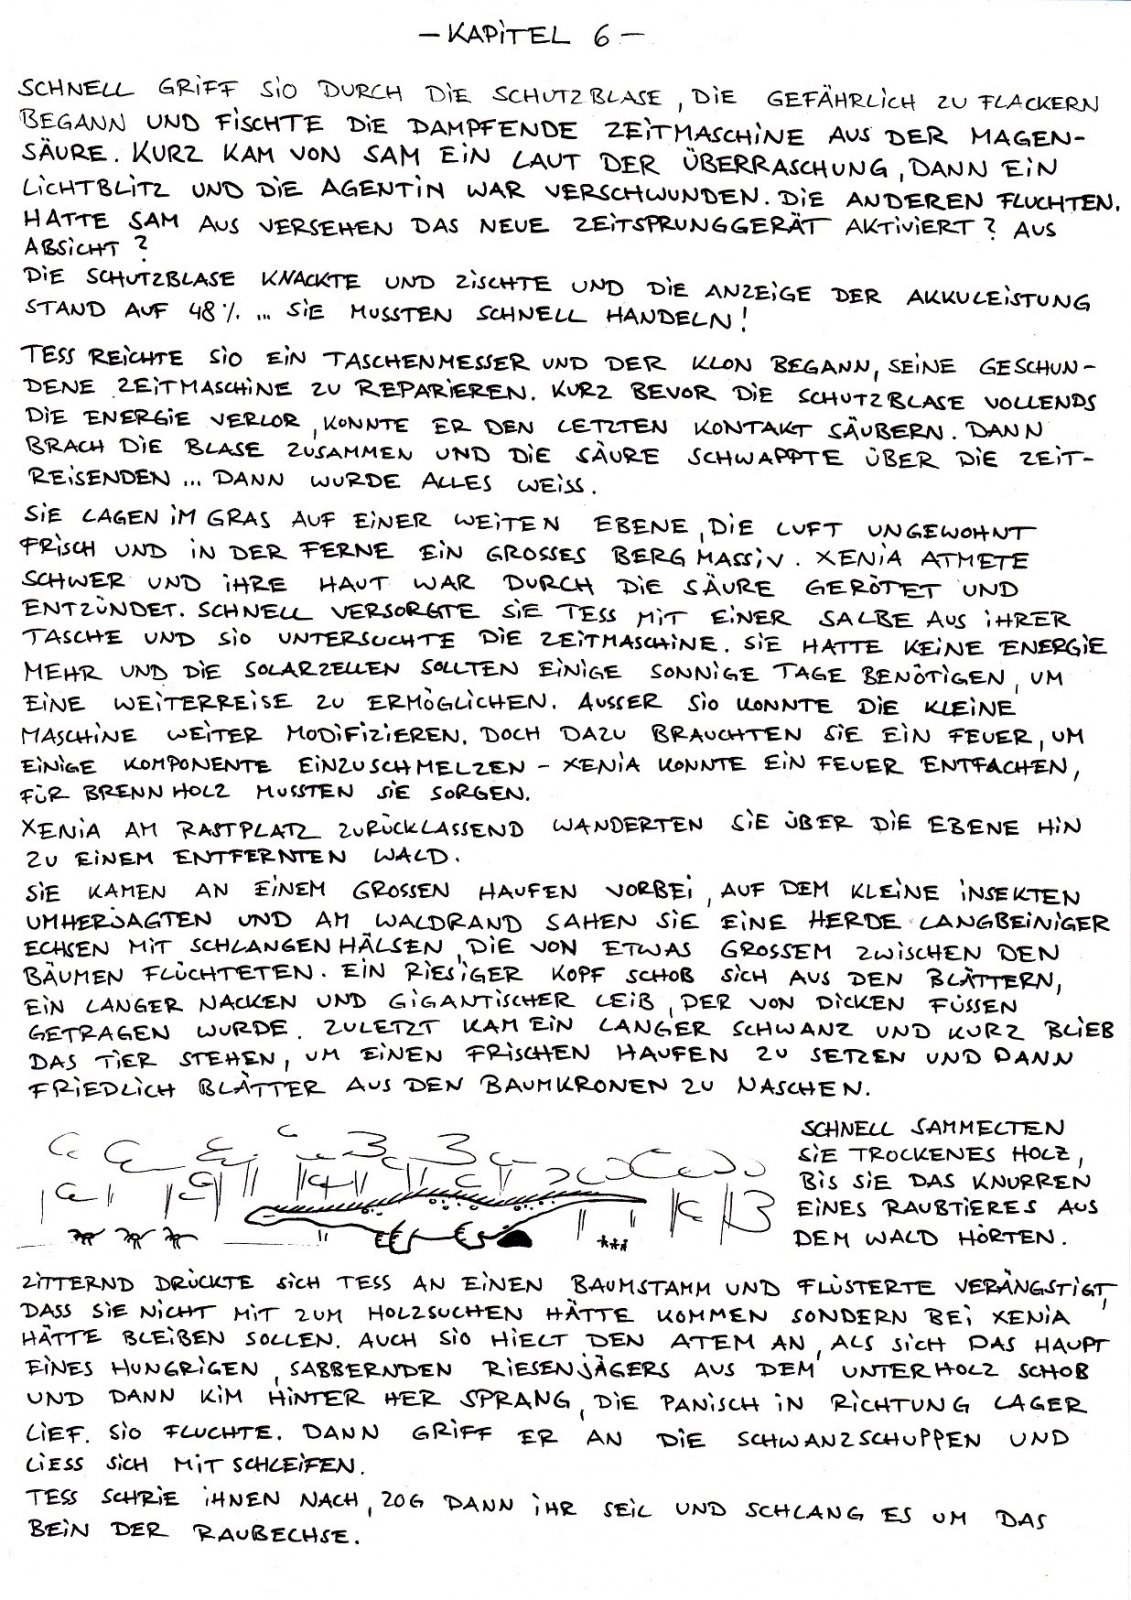 – KAPITEL 6 –
SCHNELL GRIFF SIO DURCH DIE SCHUTZBLASE, DIE GEFÄHRLICH ZU FLACKERN
BEGANN UND FISCHTE DIE DAMPFENDE ZEITMASCHINE AUS DER MAGEN-
SÄURE. KURZ KAM VON SAM EIN LAUT DER ÜBERRASCHUNG, DANN EIN
LICHTBLITZ UND DIE AGENTIN WAR VERSCHWUNDEN. DIE ANDEREN FLUCHTEN.
HATTE SAM AUS VERSEHEN DAS NEUE ZEITSPRUNGGERÄT AKTIVIERT? AUS
ABSICHT?
DIE SCHUTZBLASE KNACKTE UND ZISCHTE UND DIE ANZEIGE DER AKKULEISTUNG
STAND AUF 48% ... SIE MUSSTEN SCHNELL HANDELN!
TESS REICHTE SIO EIN TASCHENMESSER UND DER KLON BEGANN, SEINE GESCHUN-
DENE ZEITMASCHINE ZU REPARIEREN. KURZ BEVOR DIE SCHUTZBLASE VOLLENDS
DIE ENERGIE VERLOR, KONNTE ER DEN LETZTEN KONTAKT SÄUBERN. DANN
BRACH DIE BLASE ZUSAMMEN UND DIE SÄURE SCHWAPPTE ÜBER DIE ZEIT-
REISENDEN ... DANN WURDE ALLES WEISS.
SIE LAGEN IM GRAS AUF EINER WEITEN EBENE, DIE LUFT UNGEWOHNT
FRISCH UND IN DER FERNE EIN GROSSES BERGMASSIV. XENIA ATMETE
SCHWER UND IHRE HAUT WAR DURCH DIE SÄURE GERÖTET UND
ENTZÜNDET. SCHNELL VERSORGTE SIE TESS MIT EINER SALBE AUS IHRER
TASCHE UND SIO UNTERSUCHTE DIE ZEITMASCHINE. SIE HATTE KEINE ENERGIE
MEHR UND DIE SOLARZELLEN SOLLTEN EINIGE SONNIGE TAGE BENÖTIGEN, UM
EINE WEITERREISE ZU ERMÖGLICHEN. AUSSER SIO KONNTE DIE KLEINE
MASCHINE WEITER MODIFIZIEREN. DOCH DAZU BRAUCHTEN SIE EIN FEUER, UM
EINIGE KOMPONENTE EINZUSCHMELZEN – XENIA KONNTE EIN FEUER ENTFACHEN,
FÜR BRENNHOLZ MUSSTEN SIE SORGEN.
XENIA AM RASTPLATZ ZURÜCKLASSEND WANDERTEN SIE ÜBER DIE EBENE HIN
ZU EINEM ENTFERNTEN WALD.
SIE KAMEN AN EINEM GROSSEN HAUFEN VORBEI, AUF DEM KLEINE INSEKTEN
UMHERJAGTEN UND AM WALDRAND SAHEN SIE EINE HERDE LANGBEINIGER
ECHSEN MIT SCHLANGENHÄLSEN, DIE VON ETWAS GROSSEM ZWISCHEN DEN
BÄUMEN FLÜCHTETEN. EIN RIESIGER KOPF SCHOB SICH AUS DEN BLÄTTERN,
EIN LANGER NACKEN UND GIGANTISCHER LEIB, DER VON DICKEN FÜSSEN
GETRAGEN WURDE. ZULETZT KAM EIN LANGER SCHWANZ UND KURZ BLIEB
DAS TIER STEHEN, UM EINEN FRISCHEN HAUFEN ZU SETZEN UND DANN
FRIEDLICH BLÄTTER AUS DEN BAUMKRONEN ZU NASCHEN.
SCHNELL SAMMELTEN
SIE TROCKENES HOLZ,
BIS SIE DAS KNURREN
EINES RAUBTIERES AUS
DEM WALD HÖRTEN.
ZITTERND DRÜCKTE SICH TESS AN EINEN BAUMSTAMM UND FLÜSTERTE VERÄNGSTIGT,
DASS SIE NICHT MIT ZUM HOLZSUCHEN HÄTTE KOMMEN SONDERN BEI XENIA
HÄTTE BLEIBEN SOLLEN. AUCH SIO HIELT DEN ATEM AN, ALS SICH DAS HAUPT
EINES HUNGRIGEN, SABBERNDEN RIESENJÄGERS AUS DEM UNTERHOLZ SCHOB
UND DANN KIM HINTER HER SPRANG, DIE PANISCH IN RICHTUNG LAGER
LIEF. SIO FLUCHTE. DANN GRIFF ER AN DIE SCHWANZSCHUPPEN UND
LIESS SICH MITSCHLEIFEN.
TESS SCHRIE IHNEN NACH, ZOG DANN IHR SEIL UND SCHLANG ES UM DAS
BEIN DER RAUBECHSE.